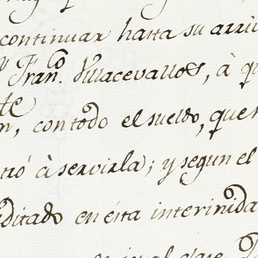 continuar hasta su arri
Fran.co Villacevallos, à q
te
n, con todo el sueldo, que
tió à servirla); y segun el
ditado en ésta interinida